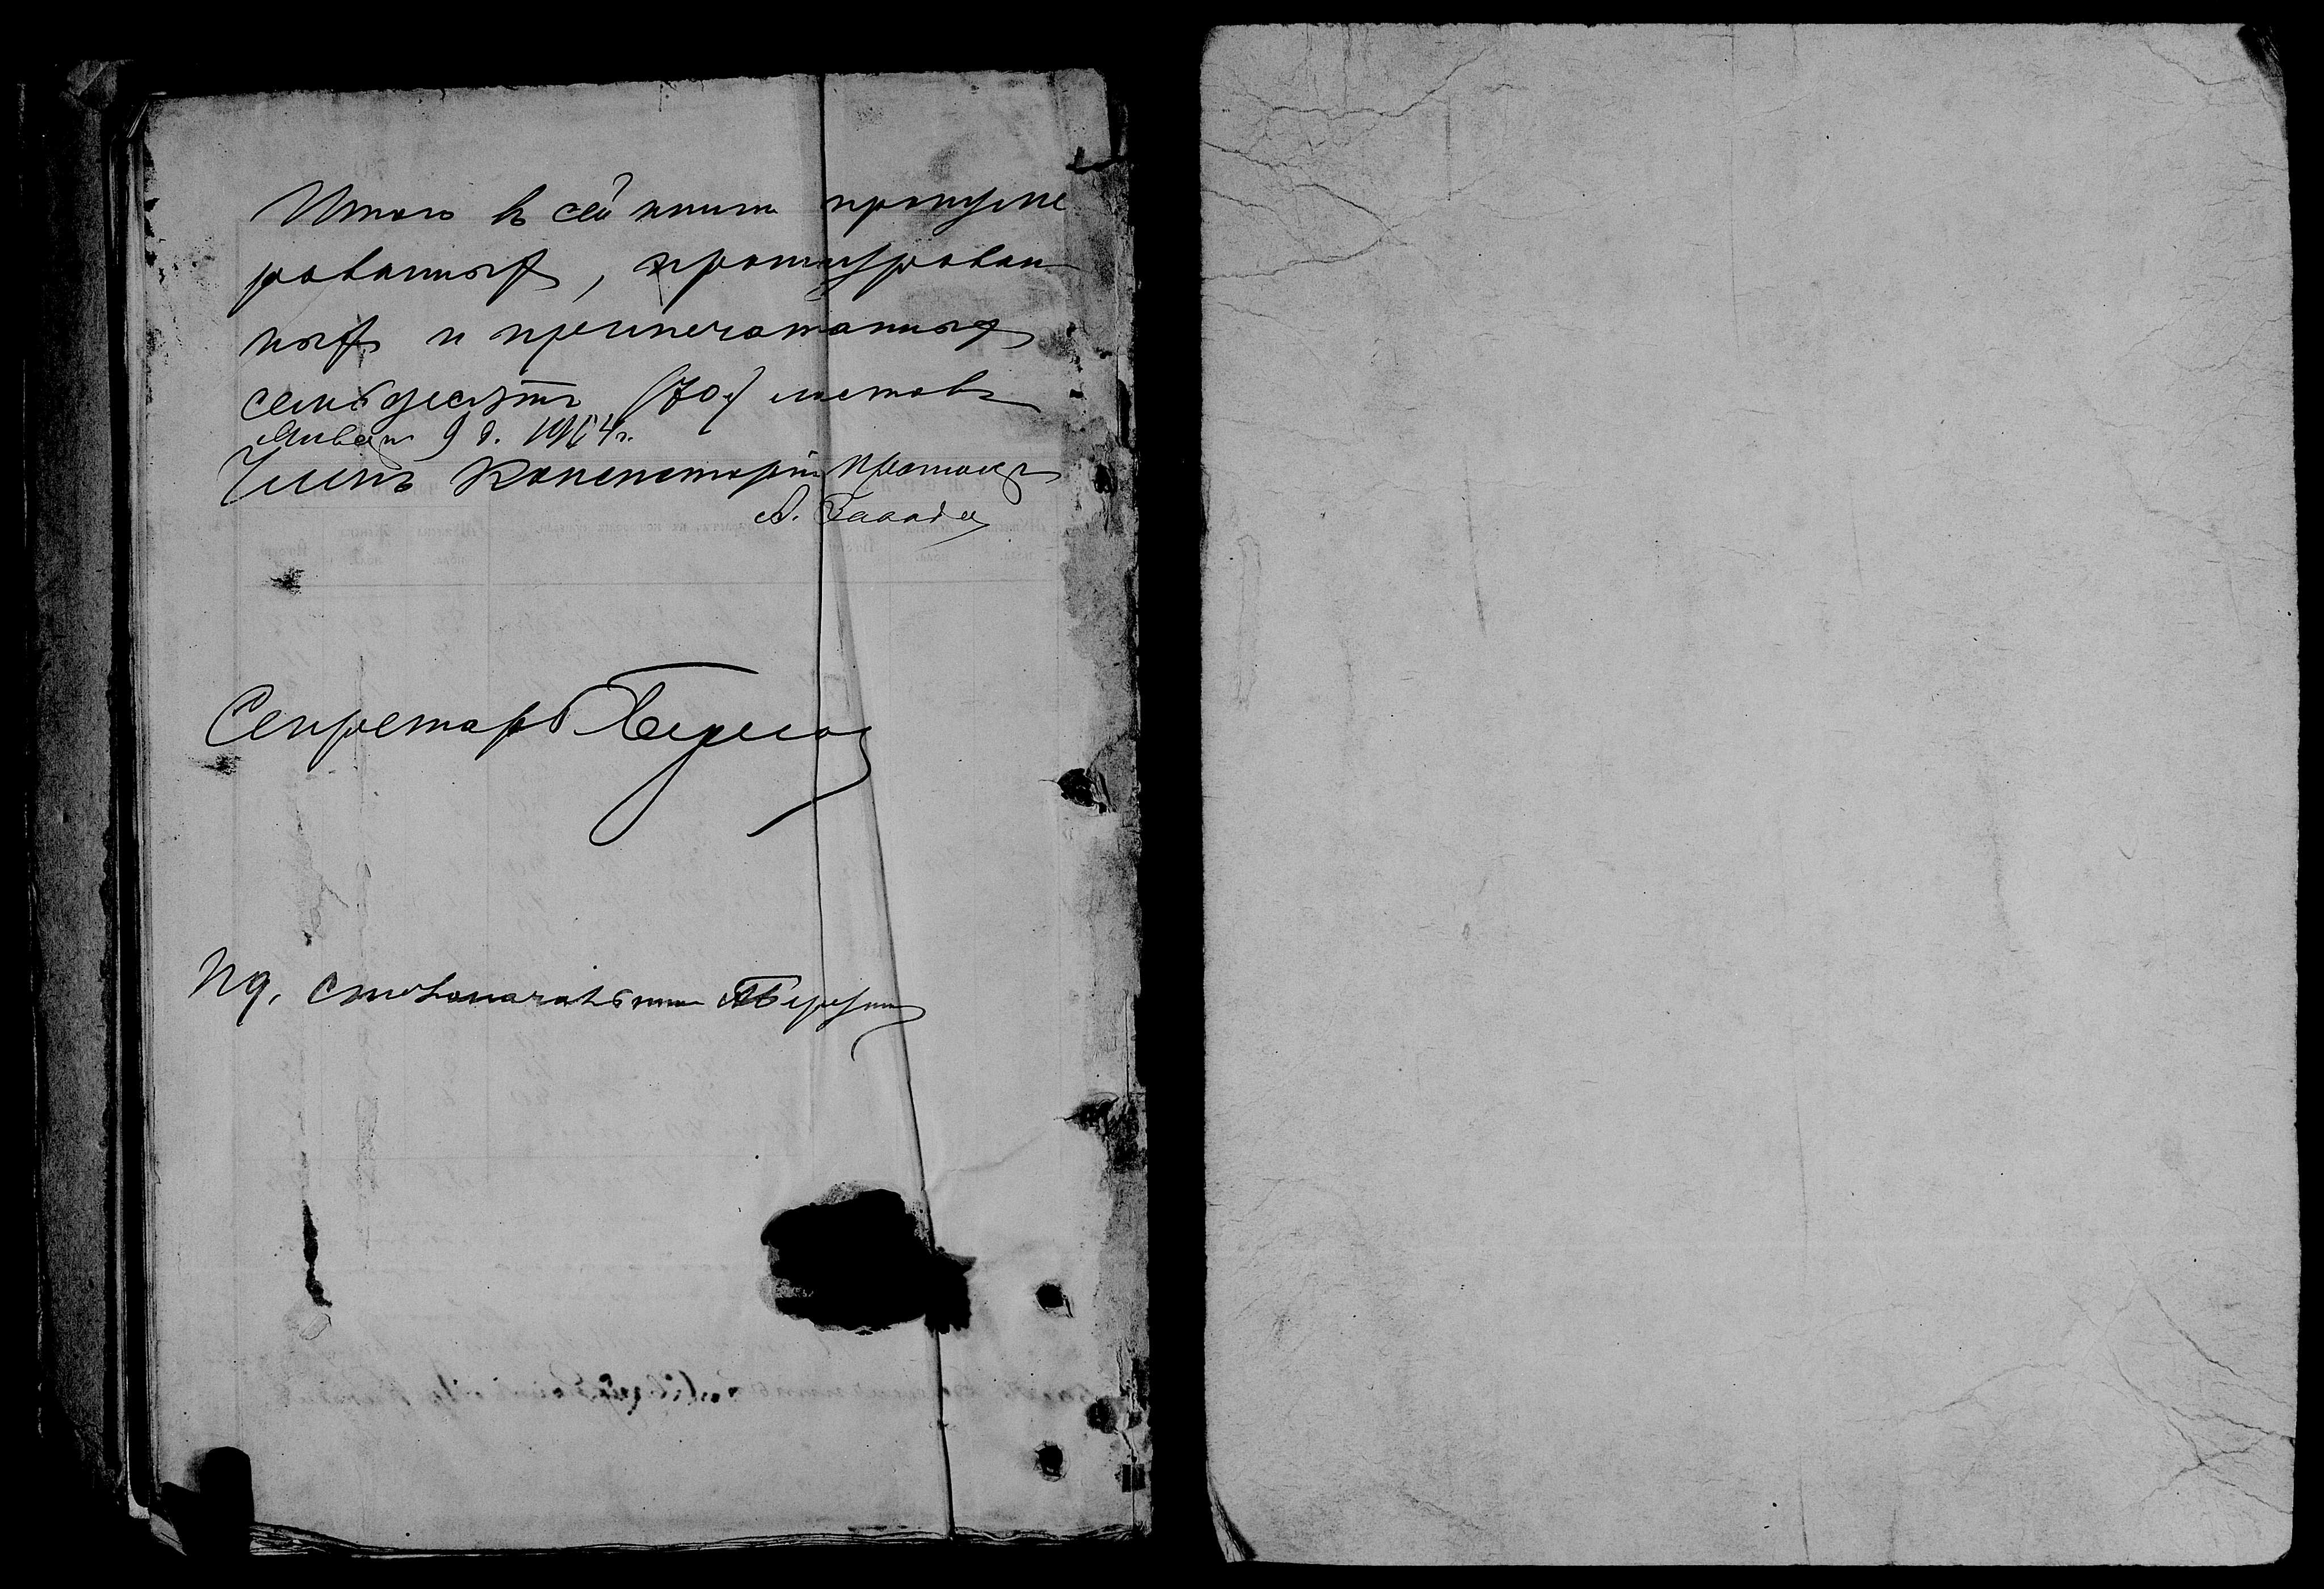 Итого въ сей книгѣ пронуме
рованныхъ, прошнурован
ныхъ и припечатанныхъ
семьдесятъ (70) листовъ
Январ 9 д. 1914 г.
Членъ Консисторіи Протоіер
А.
Секретарь
И д. Столоначальника